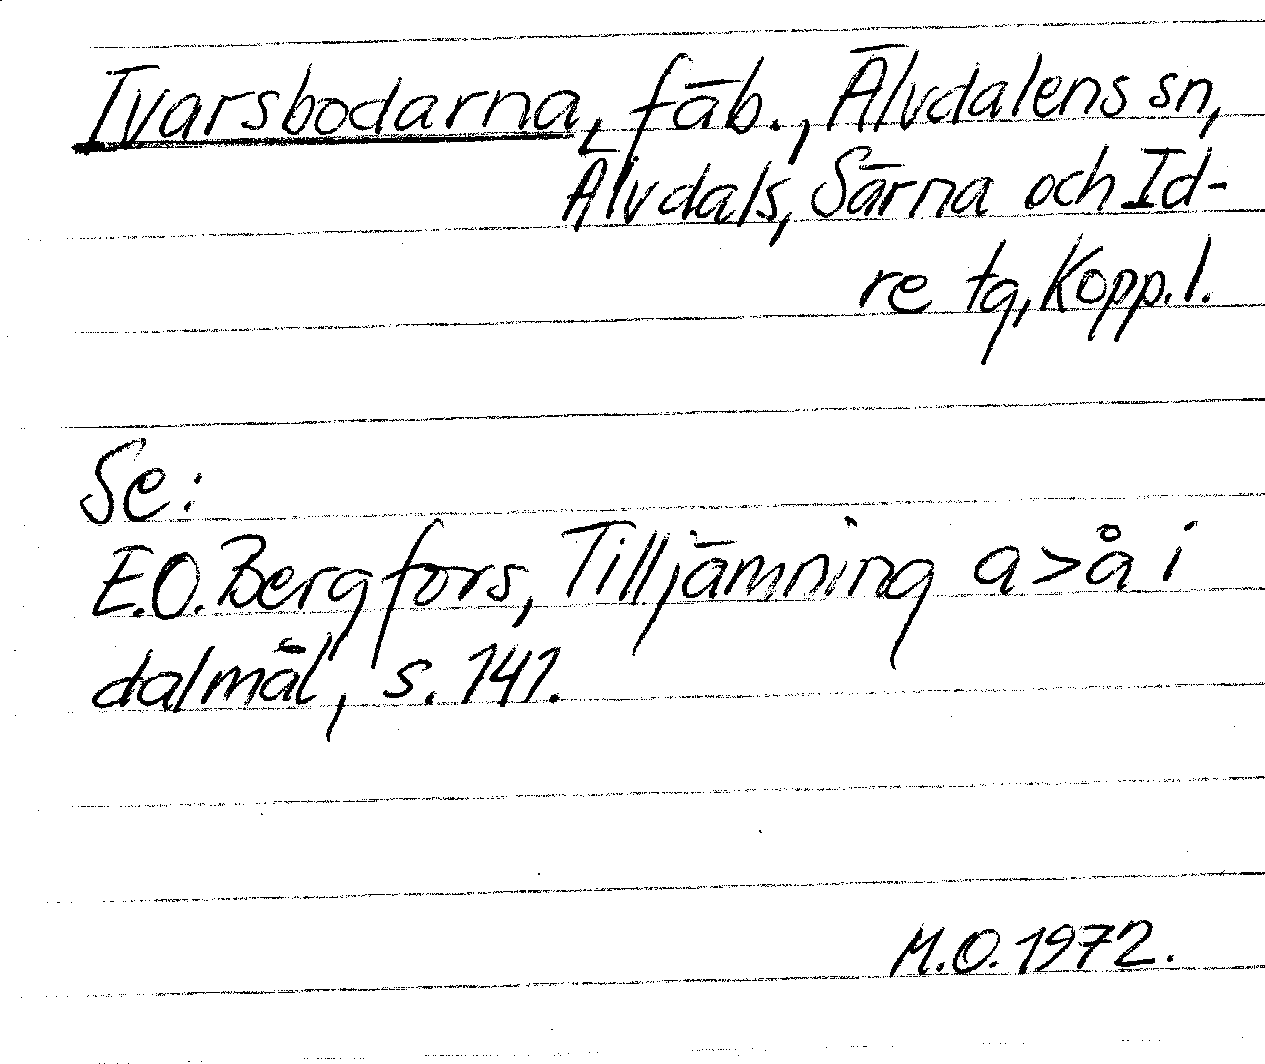 Ivarsbodarna, fäb., Älvdalens sn,
Älvdals, Särna och Id-
re tg, Kopp. l.
Se:
E.O. Bergfors, Tilljämning a>å i
dalmål, s. 141.
M.O. 1972.